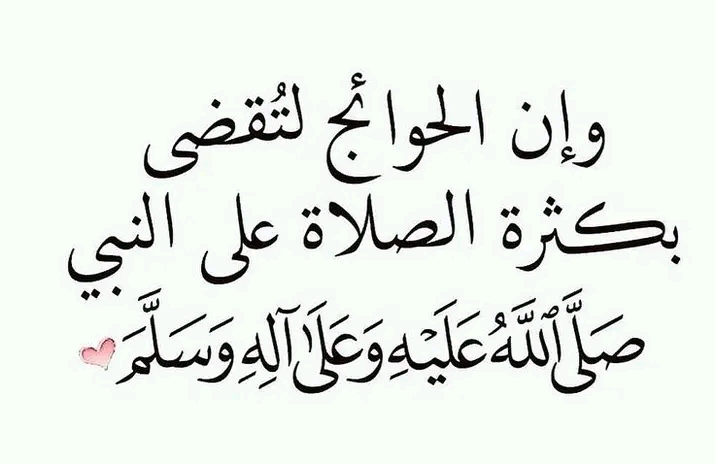 وإن الحوائج لتُقضى
بكثرة الصلاة على النبي
صَلَّى اللَّهُ عَلَيْهِ وَعَلَىٰ آلِهِ وَسَلَّمَ